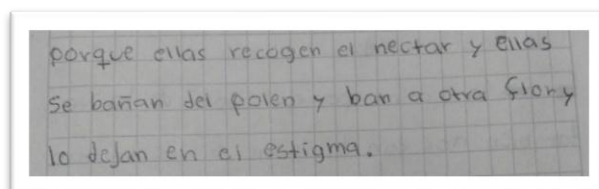 porque ellas recogen el nectar y ellas
se bañan del polen y ban a otra flor y
lo dejan en el estigma.